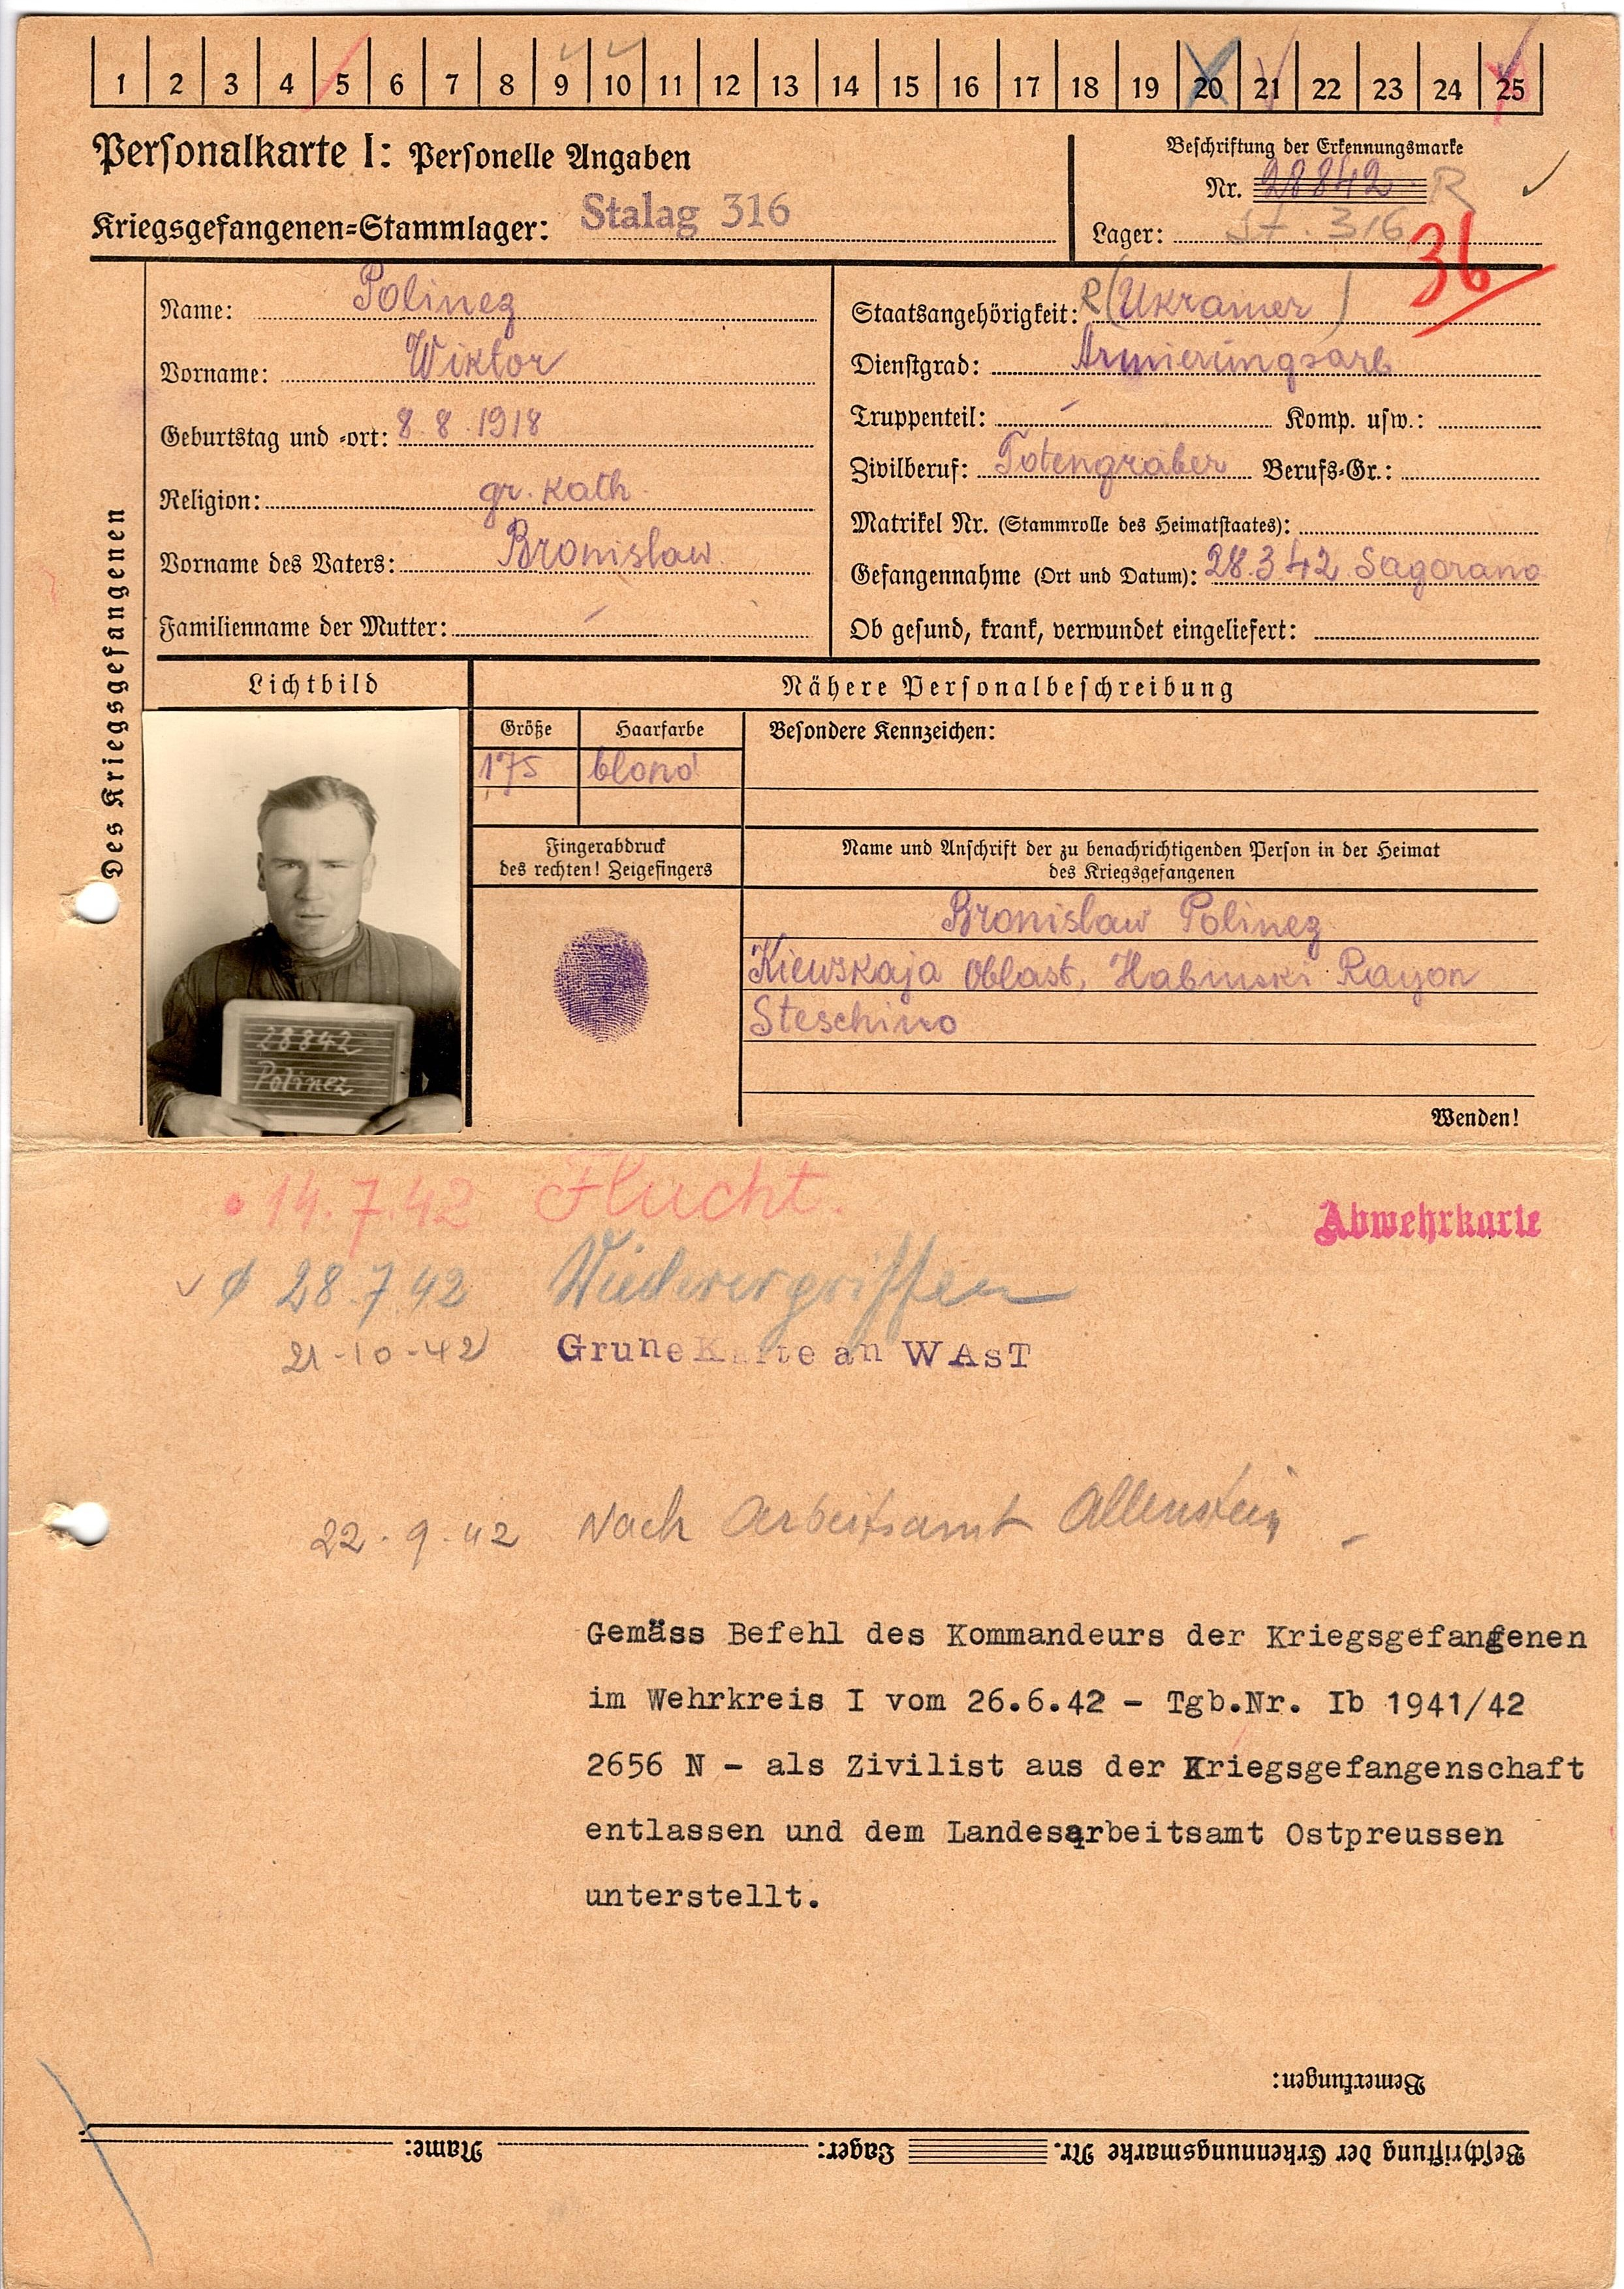 1 2 3 4 5 6 7 8 9 10 11 12 13 14 15 16 17 18 19 20 21 22 23 24 25
Personalkarte I: Personelle Angaben
Kriegsgefangenen=Stammlager: Stalag 316
Beschriftung der Erkennungsmarke
Nr. 28842 R
Lager: St. 316
36
Des Kriegsgefangenen
Name: Polinez
Vorname: Wiktor
Geburtstag und =ort: 8.8.1918
Religion: gr. kath.
Vorname des Vaters: Bronislaw
Familienname der Mutter: –
Staatsangehörigkeit: R (Ukrainer)
Dienstgrad: Armierungsarb
Truppenteil: – Komp. usw.:
Zivilberuf: Totengräber Berufs=Gr.:
Matrikel Nr. (Stammrolle des Heimatstaates):
Gefangennahme (Ort und Datum): 28.3.42 Sagorano
Ob gesund, krank, verwundet eingeliefert:
Lichtbild
Nähere Personalbeschreibung
Größe Haarfarbe Besondere Kennzeichen:
175 blond
Fingerabdruck
des rechten! Zeigefingers
Name und Anschrift der zu benachrichtigenden Person in der Heimat
des Kriegsgefangenen
Bronislaw Polinez
Kiewskaja Oblast, Rayon
Steschino
28842
Polinez
Wenden!
14.7.42 Flucht.
Abwehrkarte
28.7.42 Wiederergriffen
21-10-42 Grune Karte an WAsT
22.9.42 Nach Arbeitsamt Allenstein
Gemäss Befehl des Kommandeurs der Kriegsgefangenen
im Wehrkreis I vom 26.6.42 – Tgb.Nr. Ib 1941/42
2656 N – als Zivilist aus der Kriegsgefangenschaft
entlassen und dem Landesarbeitsamt Ostpreussen
unterstellt.
Bemerkungen:
Beschriftung der Erkennungsmarke Nr. Lager: Name: